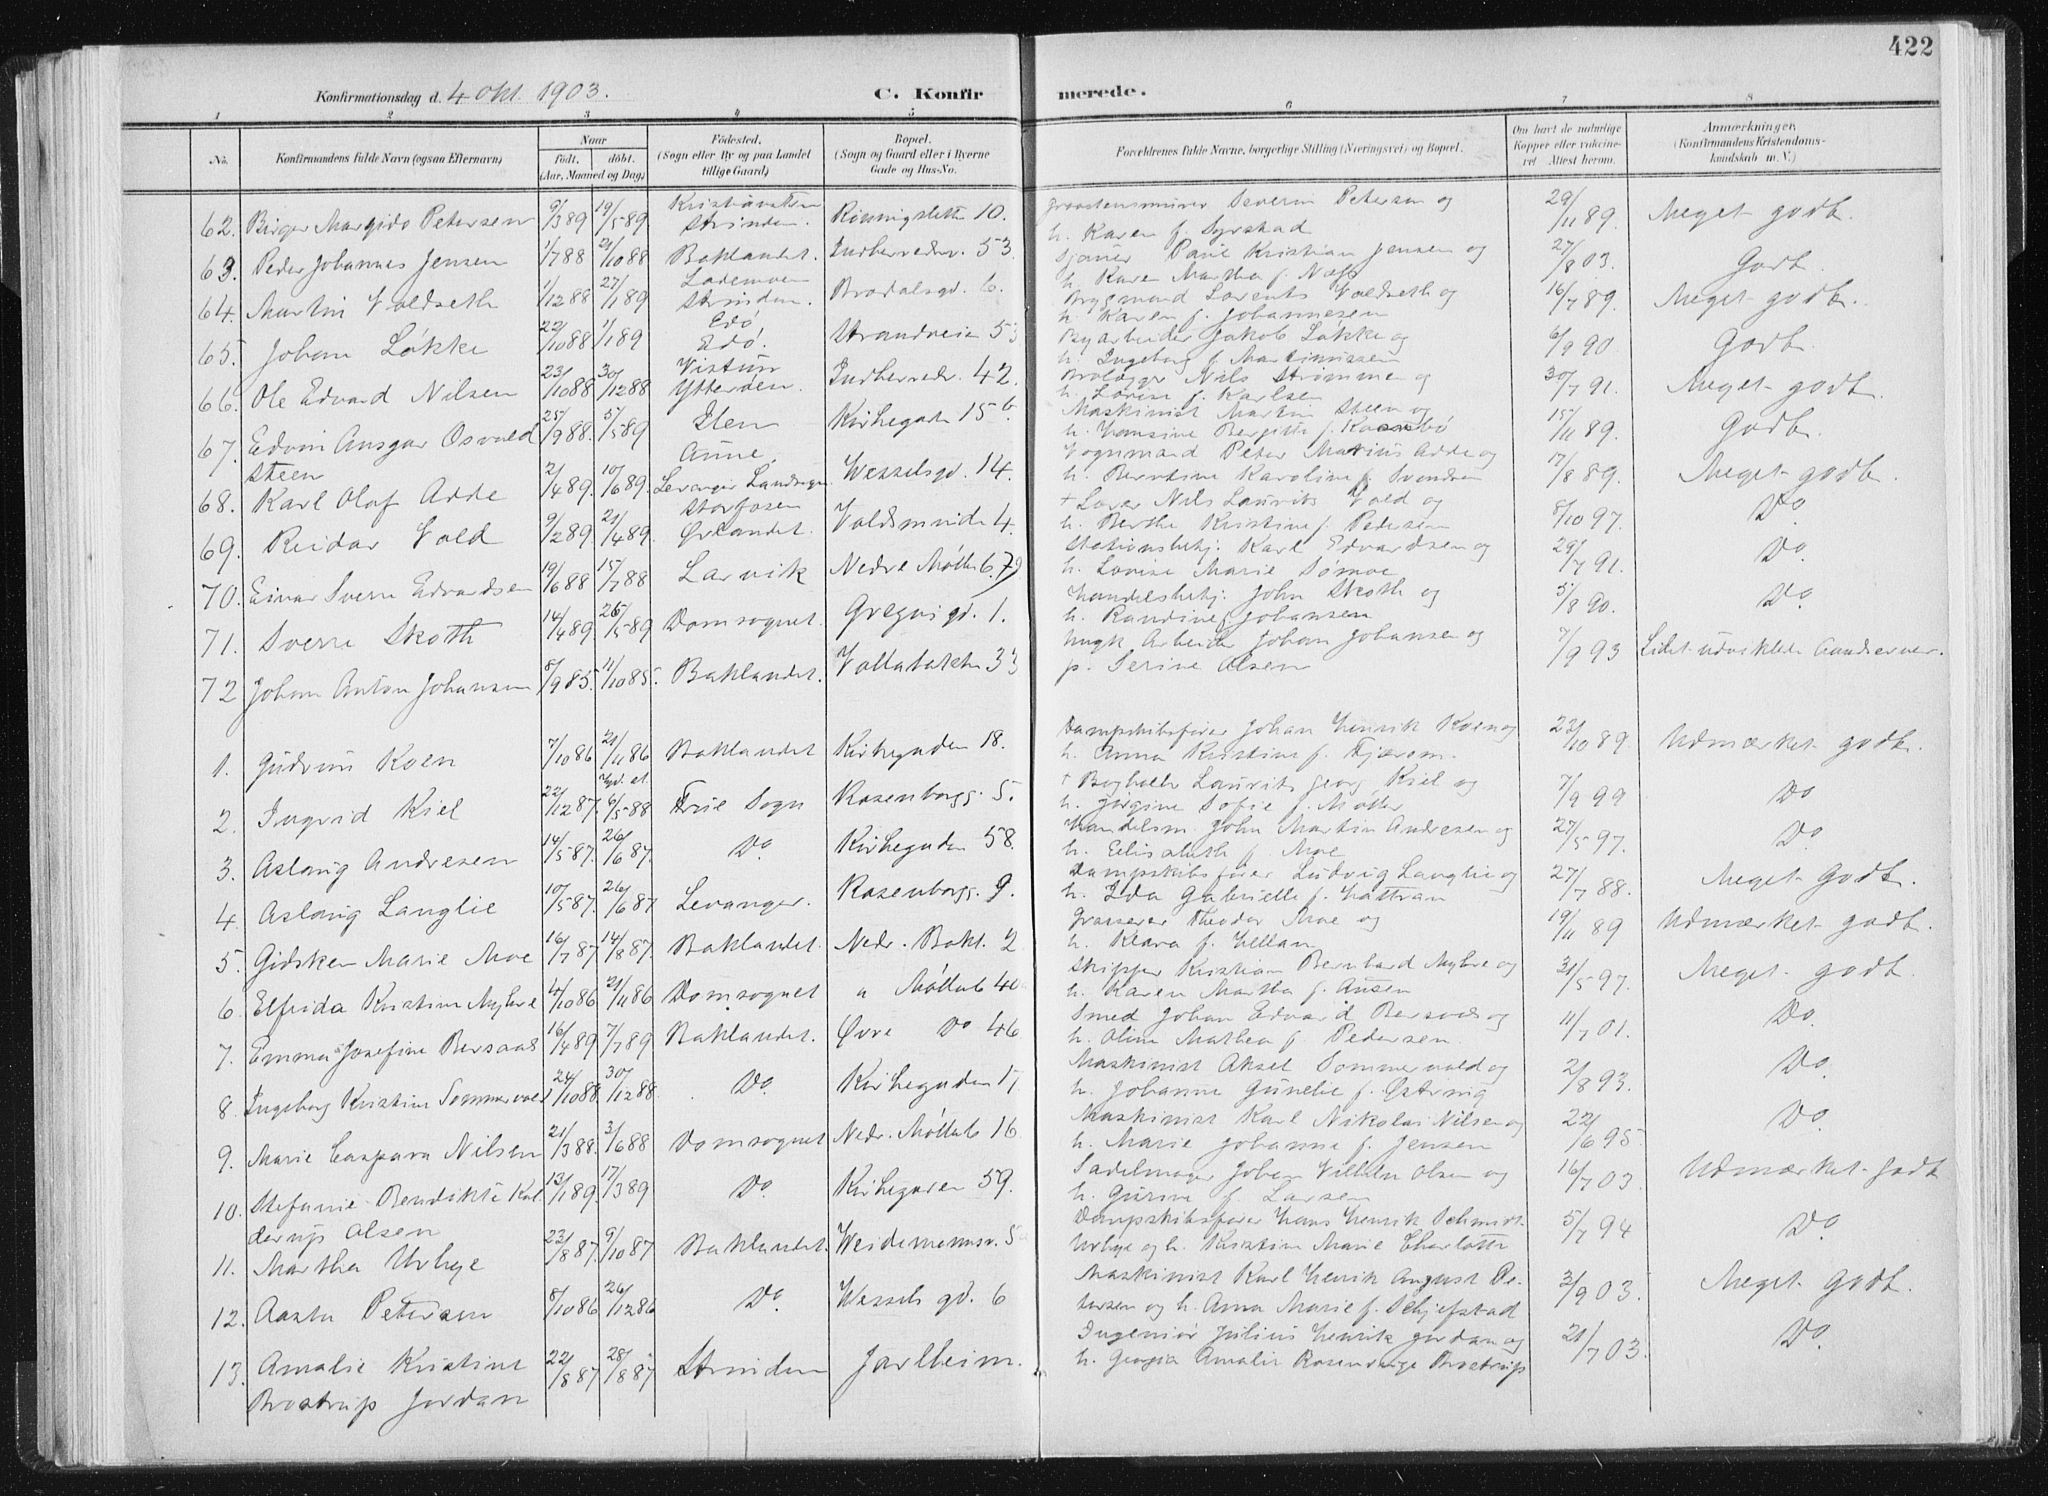 422
Konfirmationsdag d. 4 Okt. 1903. C. Konfirmerede.
1 2 3 4 5 6 7 8
No. Konfirmandens fulde Navn (ogsaa Efternavn) Naar født, døbt, (Aar, Maaned og Dag) Fødested. (Sogn eller By og paa Landet tillige Gaard) Bopæl. (Sogn og Gaard eller i Byerne Gade og Hus-No. Forældrenes fulde Navne, borgerlige Stilling (Næringsvei) og Bopæl. Om havt de naturlige Kopper eller vaccineret. Attest herom. Anmærkninger. (Konfirmandens Kristendomskundskab m. V.)
62. Birger Margido Petersen 9/3 89 19/5 89 Strinden. 10. Severin Petersen og h. Karen f. Syrstad 29/11 89. Meget godt.
63. Peder Johannes Jensen 1/7 88 21/10 88 Baklandet. Indherredsv. 53. Sjauer Paul Kristian Jensen og h. Karen Martha f. Næss 27/8 03. Godt.
64. Martin Voldseth 1/12 88 27/1 89 Lademoen Strinden. 6. Brygmand Lorents Voldseth og h. Karen f. Johannesen 16/7 89. Meget godt.
65. Johan Løkke 22/10 88 1/1 89 Edø Edø. Strandveien 53 Byarbeider Jakob Løkke og h. Ingeborg f. Martinussen 6/9 90. Godt.
66. Ole Edvard Nilsen 23/10 88 30/12 88 Ytterøen. Indherredsv. 42. Brolægger Nils Strømmen og h. Lovise f. Karlsen 30/7 91. Meget godt.
67. Edvin Ansgar Osvald Steen 25/9 88. 5/5 89 Ilen Kirkegaden 15 b. Maskinist Martin Steen og h. Hansine Bergitte f. 15/11 89. Godt.
68. Karl Olaf Adde 2/4 89. 10/6 89. Levanger Landsogn Wesselsgd. 14. Vognmand Peter Marius Adde og h. Berntine Karoline f. Svendsen 17/8 89. Meget godt.
69. Reidar Vold 9/2 89 21/4 89. Storfosen Ørlandet. 4. + Laver Nils Laurits Vold og h. Berthe Kristine f. Pedersen 8/10 97. Do.
70. Einar Sverre Edvardsen 19/6 88 15/7 88 Larvik Nedre Møllb 6. Stationsbetj. Karl Edvardsen og h. Lovise Marie Sømoe 29/7 91. Do.
71. Sverre Skoth 14/4 89 26/5 89 Domsognet. Gregusgd. 1. Handelsbetj. John Skoth og h. Randine f. Johansen 5/8 90. Do.
72 Johan Anton Johansen 8/9 85. 11/10 85. Baklandet. Vollabakken 33 Arbeider Johan Johansen og p. Serine Olsen 7/9 93 Lidet udviklede Aandsevner.
1. Gudrun Koen 7/10 86 21/11 86 Baklandet Kirkegaden 18. Dampskibsfører Johan Henrik Koen og h. Anna Kristine f. Fjærem. 23/10 89. Udmærket godt.
2. Ingrid Kiel 22/12 87. 6/5 88 Frue Sogn Rosenborgg. 5. + Bogholder Laurits Georg Kiel og h. Jørgine Sofie f. Møller 7/9 99 Do
3. Aslaug Andresen 14/5 87. 26/6 87. Do. Kirkegaden 58. Handelsm. John Martin Andresen og h. Elisabeth f. Moe 27/5 97. Do.
4 Aslaug Langlie 10/5 87. 26/6 87 Levanger. Rosenborgg. 9. Dampskibsfører Ludvig Langlie og h. Ida Gabrielle f. Hattran 27/7 88. Meget Godt.
5. Gidsken Marie Moe 16/7 87 14/8 87. Baklandet. Nedr. Bakl. 2 Grosserer Theodor Moe og h. Klara f. Hellan 19/11 89 Udmærket godt.
6. Elfrida Kristine Myhre 4/10 86 21/11 86 Domsognet " Møllub 40 Skipper Kristian Bernhard Myhre og h. Karen Martha f. Ansen 31/5 97. Meget godt.
7. Emma Josefine Bersaas 16/4 89 7/7 89 Baklandet. Øvre Do 46 Smed Johan Edvard Bersaas og h. Oline Mathea f. Pedersen. 11/7 01. Do.
8. Ingeborg Kristine Sommervold 24/10 88. 30/12 88. Do. Kirkegaden 17. Maskinist Aksel Sommervold og h. Johanne Gunelie f. Østering 2/8 93. Do.
9. Marie Caspara Nilsen 21/3 88. 3/6 88 Domsognet Nedr. Møllub 16 Maskinist Karl Nikolai Nilsen og h. Marie Johanna f. Jensen 22/6 95. Do
10. Stefanie Bendikte Kolderup Olsen 13/1 89. 17/3 89 Do. Kirkegaden 59. Sadelmager Johan Vilhelm Olsen og h. Gurine f. Larsen 16/7 03. Udmærket godt
11. Martha Urbye 23/8 87. 9/10 87 Baklandet. Weidemannsv. 5 Dampskibsfører Hans Henrik Schmidt Urbye og h. Kristine Marie Charlotte 5/7 94 Do.
12. Aasta Petersen 8/10 86 26/12 86 Do. Wessels gd. 6 Maskinist Karl Henrik August Petersen og h. Anna Marie f. Schjefstad 3/9 03. Meget Godt.
13. Amalie Kristine Brostrup Jordan 22/8 87 28/8 87 Strinden Jarlheim. Ingeniør Julius Henrik Jordan og h. Georgia Amalie Rosenvinge Brostrup 21/7 03. Do.